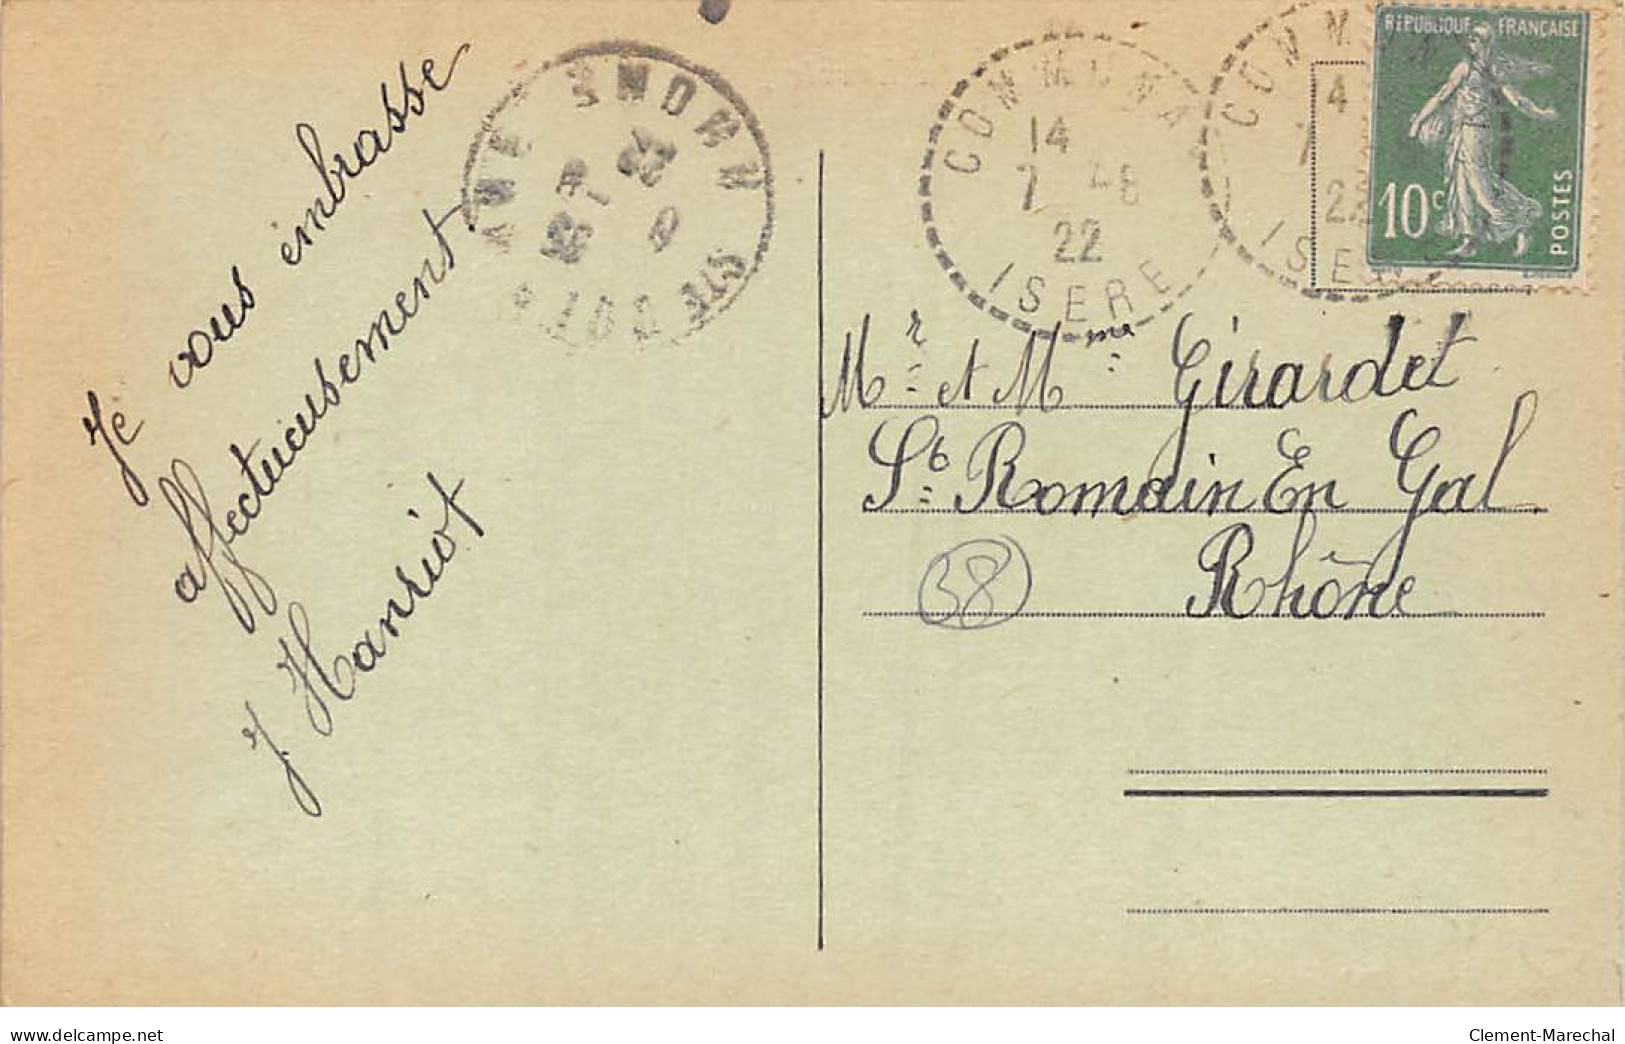 Je vous embrasse
affectueusement.
J. Hanriot
COMMUNAY
14
7 -8
22
ISERE
RÉPUBLIQUE FRANÇAISE
10c
POSTES
Mr et Mme Girardet
St Romain En Gal
Rhône
38
delcampe.net
Clement-Marechal